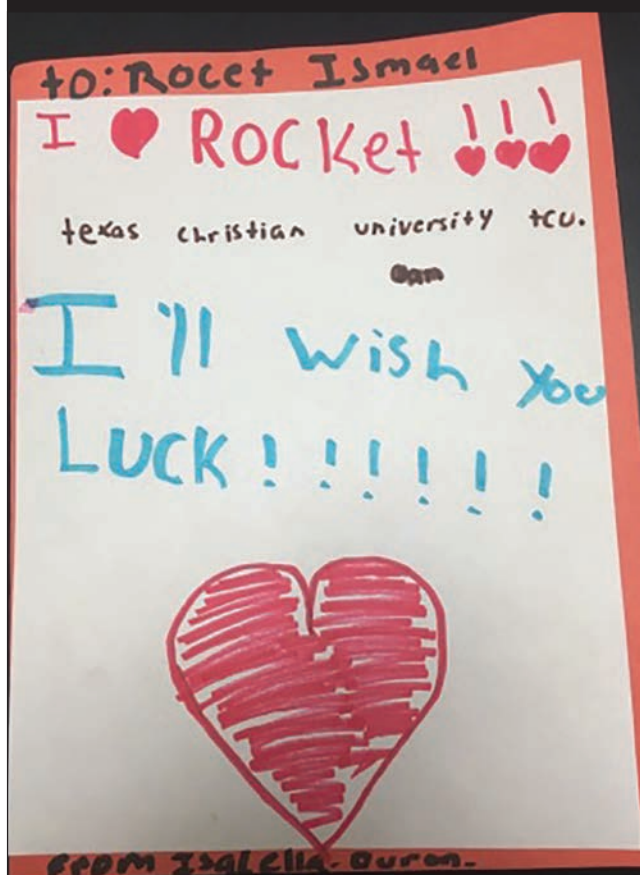 to: Rocet Ismael
I ROCKet !!!
texas christian university tcu.
I'll wish you
LUCK ! ! ! ! ! !
From Isabella. Duron.